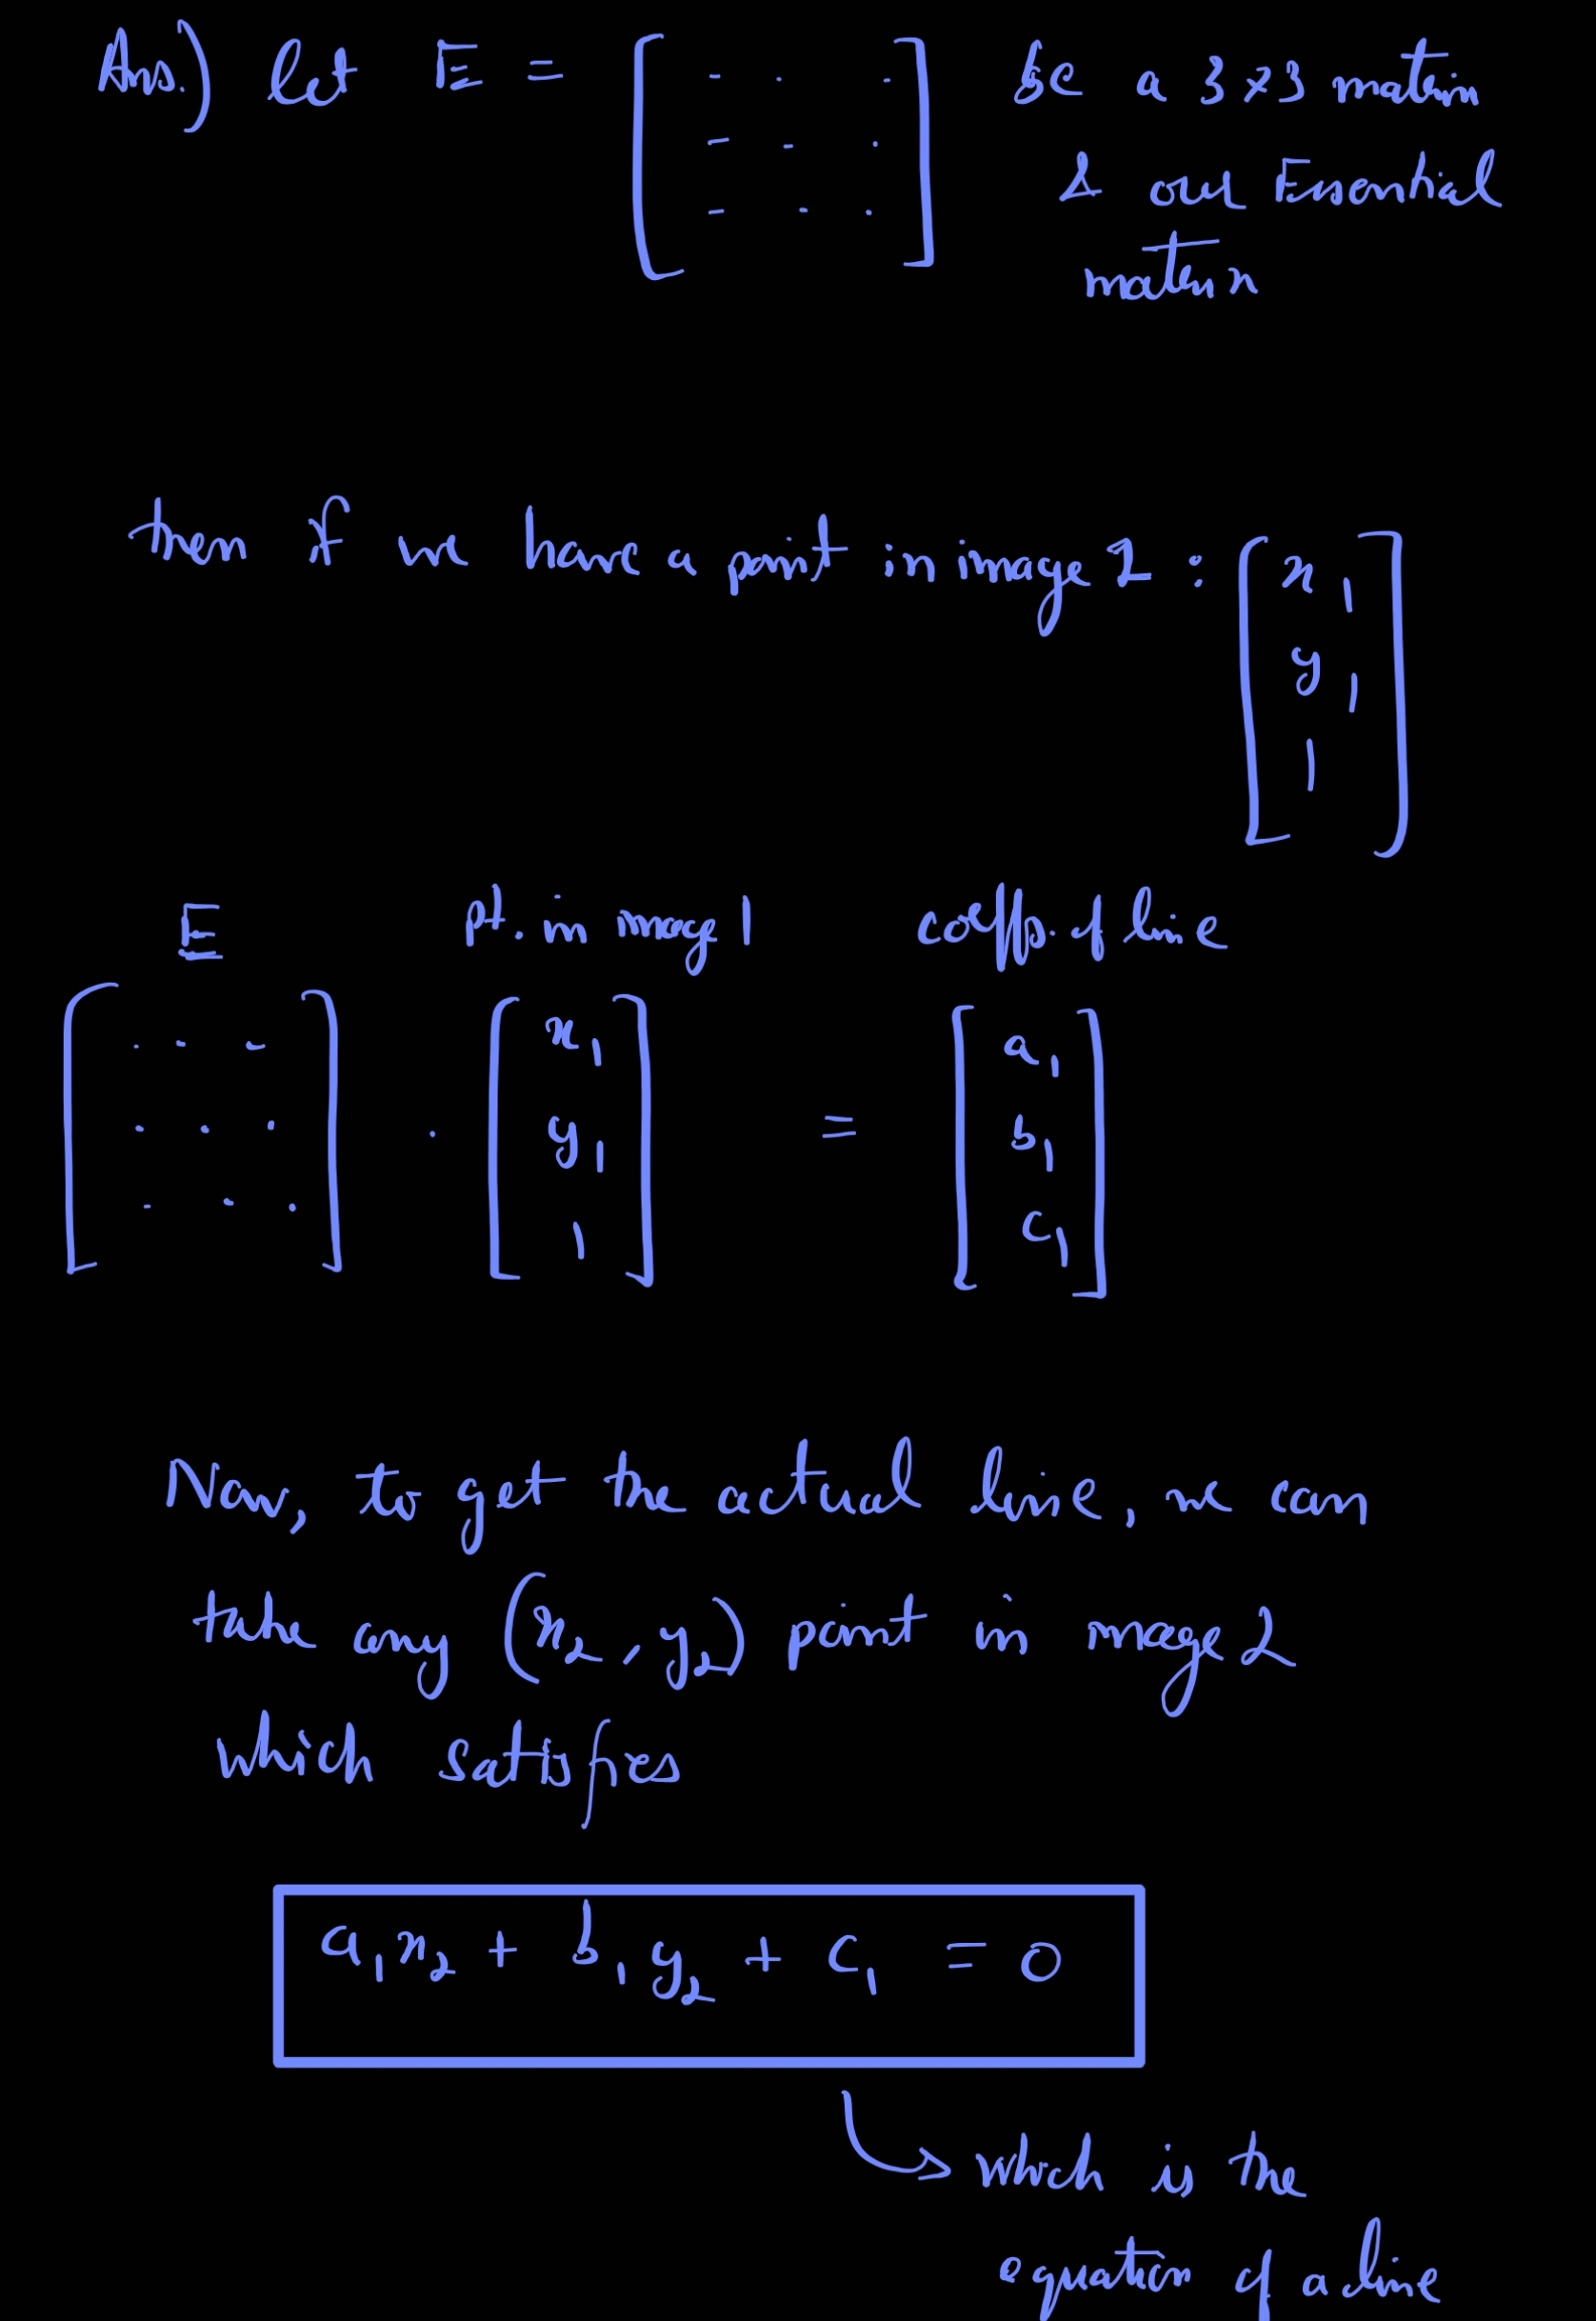 Ans.) let E = [ - . - - - . - - . ] be a 3x3 matrix
& our Essential
matrix
then if we have a point in image 1 : [ x₁ y₁ 1 ]
E pt. in image 1 coeffs. of line
[ . . - . . . . . . ] . [ x₁ y₁ 1 ] = [ a₁ b₁ c₁ ]
Now, to get the actual line, we can
take any (x₂, y₂) point in image 2
which satisfies
a₁x₂ + b₁y₂ + c₁ = 0
↳ which is the
equation of a line